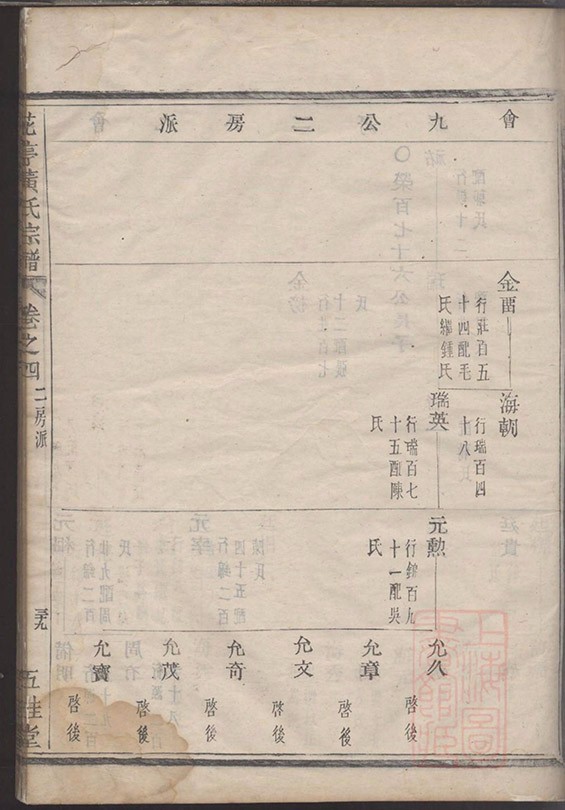 會九公二房派
金
行莊百五
十四配毛
氏繼鍾氏
海朝
行瑞百四
十八
瑞英
行瑞百七
十五配陳
氏
元勲
行錦百九
十一配吳
氏
允久
啓後
允章
啓後
允文
啓後
允奇
啓後
允茂
啓後
允寶
啓後
花亭黃氏宗譜
卷之四
二房派
五桂堂